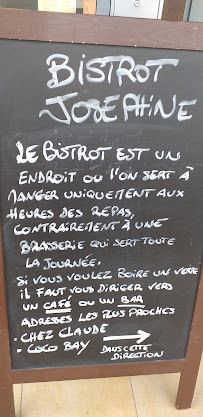 BISTROT
JOSEPHINE
LE BISTROT EST UN
ENDROIT OU l'ON SERT À
MANGER UNIQUEMENT AUX
HEURES DES REPAS,
CONTRAIREMENT À UNE
BRASSERIE QUI SERT TOUTE
LA JOURNÉE.
SI VOUS VOULEZ BOIRE UN VERRE
IL FAUT VOUS DIRIGER VERS
UN CAFÉ OU UN BAR
ADRESSES LES PLUS PROCHES
- CHEZ CLAUDE
- COCO BAY DANS CETTE
DIRECTION